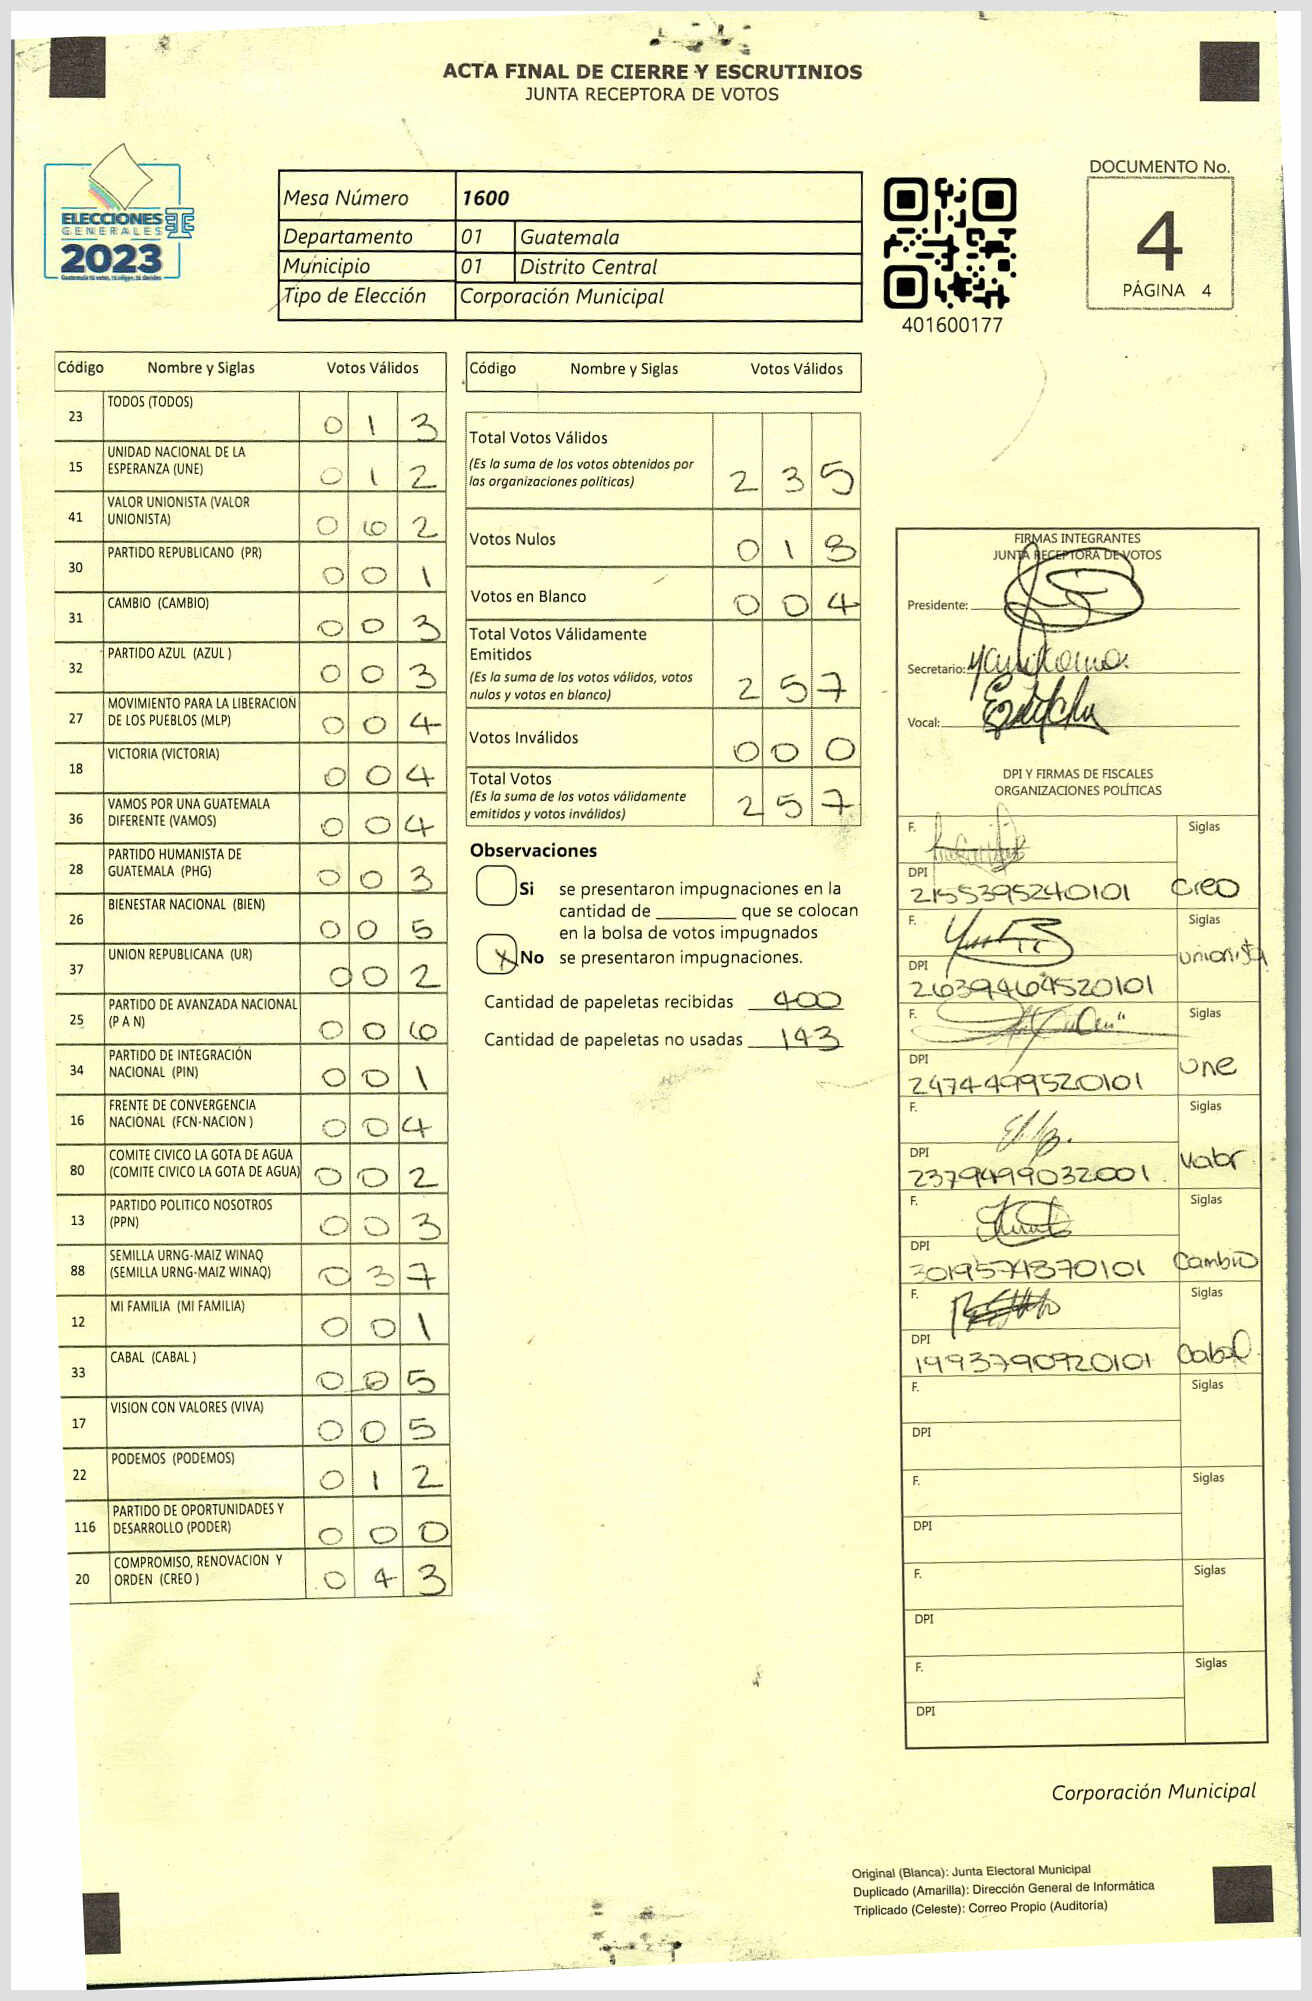 ACTA FINAL DE CIERRE Y ESCRUTINIOS
JUNTA RECEPTORA DE VOTOS
ELECCIONES
GENERALES
2023
Mesa Número 1600
Departamento 01 Guatemala
Municipio 01 Distrito Central
Tipo de Elección Corporación Municipal
401600177
DOCUMENTO No.
4
PÁGINA 4
Código Nombre y Siglas Votos Válidos
23 TODOS (TODOS) 0 1 3
15 UNIDAD NACIONAL DE LA
ESPERANZA (UNE) 0 1 2
41 VALOR UNIONISTA (VALOR
UNIONISTA) 0 6 2
30 PARTIDO REPUBLICANO (PR) 0 0 1
31 CAMBIO (CAMBIO) 0 0 3
32 PARTIDO AZUL (AZUL ) 0 0 3
27 MOVIMIENTO PARA LA LIBERACION
DE LOS PUEBLOS (MLP) 0 0 4
18 VICTORIA (VICTORIA) 0 0 4
36 VAMOS POR UNA GUATEMALA
DIFERENTE (VAMOS) 0 0 4
28 PARTIDO HUMANISTA DE
GUATEMALA (PHG) 0 0 3
26 BIENESTAR NACIONAL (BIEN) 0 0 5
37 UNION REPUBLICANA (UR) 0 0 2
25 PARTIDO DE AVANZADA NACIONAL
(P A N) 0 0 6
34 PARTIDO DE INTEGRACIÓN
NACIONAL (PIN) 0 0 1
16 FRENTE DE CONVERGENCIA
NACIONAL (FCN-NACION ) 0 0 4
80 COMITE CIVICO LA GOTA DE AGUA
(COMITE CIVICO LA GOTA DE AGUA) 0 0 2
13 PARTIDO POLITICO NOSOTROS
(PPN) 0 0 3
88 SEMILLA URNG-MAIZ WINAQ
(SEMILLA URNG-MAIZ WINAQ) 0 3 7
12 MI FAMILIA (MI FAMILIA) 0 0 1
33 CABAL (CABAL ) 0 0 5
17 VISION CON VALORES (VIVA) 0 0 5
22 PODEMOS (PODEMOS) 0 1 2
116 PARTIDO DE OPORTUNIDADES Y
DESARROLLO (PODER) 0 0 0
20 COMPROMISO, RENOVACION Y
ORDEN (CREO ) 0 4 3
Código Nombre y Siglas Votos Válidos
Total Votos Válidos
(Es la suma de los votos obtenidos por
las organizaciones políticas) 2 3 5
Votos Nulos 0 1 8
Votos en Blanco 0 0 4
Total Votos Válidamente
Emitidos
(Es la suma de los votos válidos, votos
nulos y votos en blanco) 2 5 7
Votos Inválidos 0 0 0
Total Votos
(Es la suma de los votos válidamente
emitidos y votos inválidos) 2 5 7
Observaciones
Si se presentaron impugnaciones en la
cantidad de ________ que se colocan
en la bolsa de votos impugnados
X No se presentaron impugnaciones.
Cantidad de papeletas recibidas 400
Cantidad de papeletas no usadas 143
FIRMAS INTEGRANTES
JUNTA RECEPTORA DE VOTOS
Presidente:
Secretario:
Vocal:
DPI Y FIRMAS DE FISCALES
ORGANIZACIONES POLÍTICAS
F. Siglas
DPI
2155395240101 Creo
F. Siglas
DPI unionista
2639464520101
F. Siglas
DPI une
2474499520101
F. Siglas
DPI valor
2379499032001
F. Siglas
DPI
3019574870101 Cambio
F. Siglas
DPI
1993790920101 Cabal
F. Siglas
DPI
F. Siglas
DPI
F. Siglas
DPI
F. Siglas
DPI
Corporación Municipal
Original (Blanca): Junta Electoral Municipal
Duplicado (Amarilla): Dirección General de Informática
Triplicado (Celeste): Correo Propio (Auditoría)